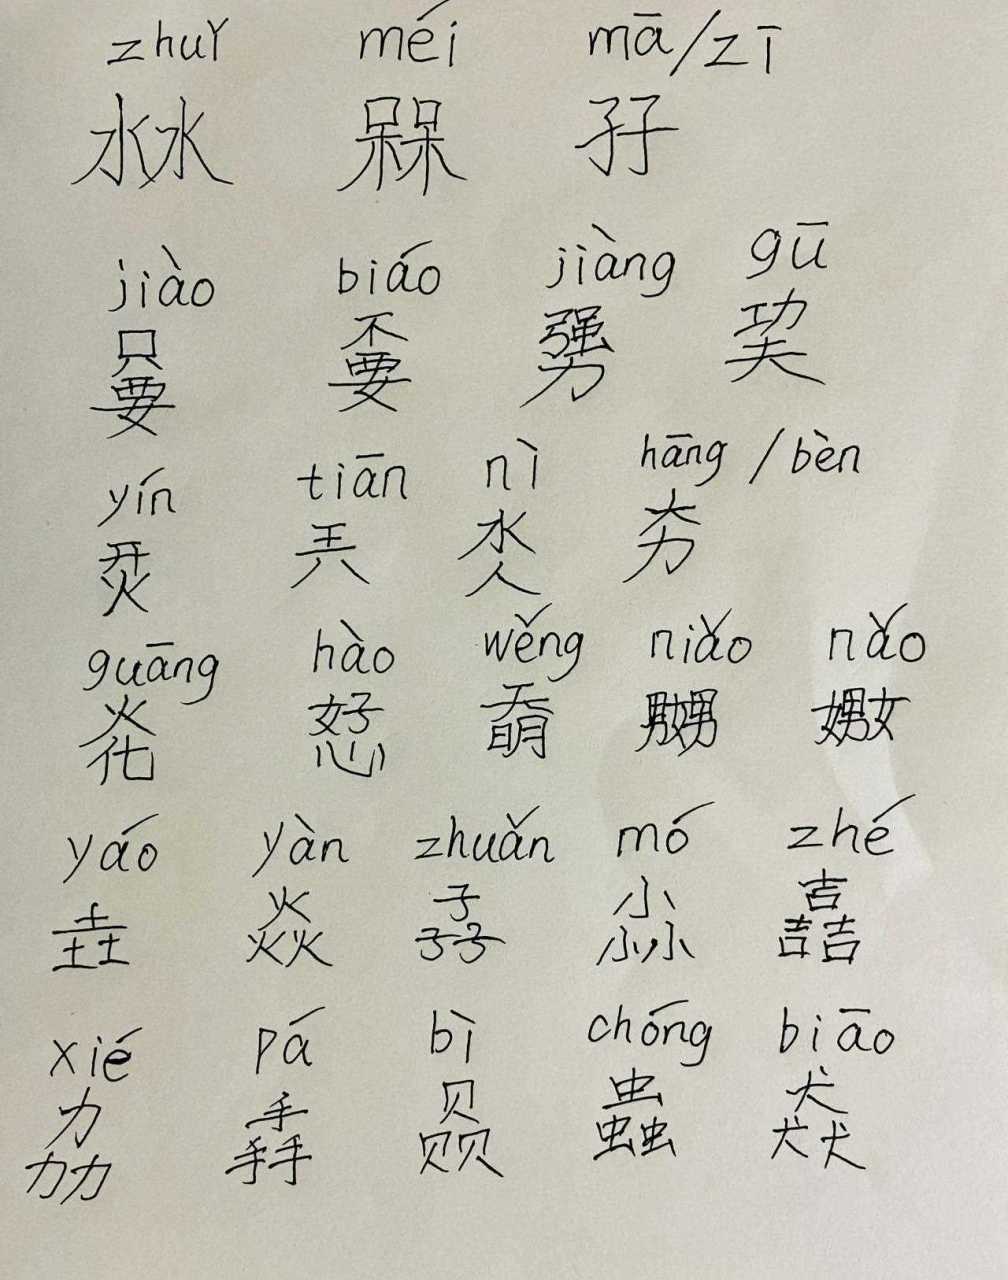 zhuǐ méi mā/zī
沝 槑 孖
jiào biáo jiàng gū
嘦 嫑 勥 巭
yín tiān nì hāng/bèn
烎 兲 氼 夯
guāng hào wěng niǎo nǎo
恏 奣 嬲 嫐
yáo yàn zhuǎn mó zhé
垚 焱 孨 尛 嚞
xié pá bì chóng biāo
劦 掱 赑 蟲 猋